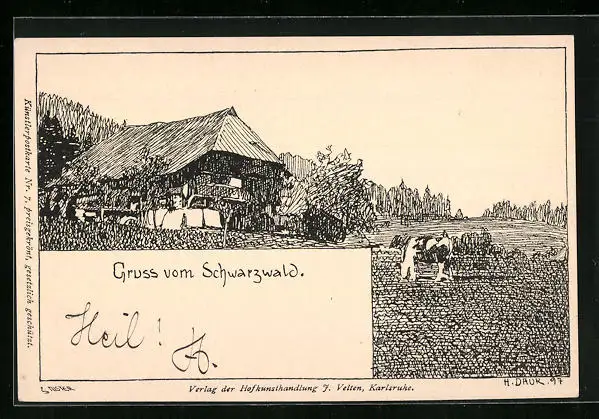 Künstlerpostkarte Nr. 7, preisgekrönt, gesetzlich geschützt.
Gruss vom Schwarzwald.
Heil! H.
H. DAUR. 97
Verlag der Hofkunsthandlung J. Velten, Karlsruhe.